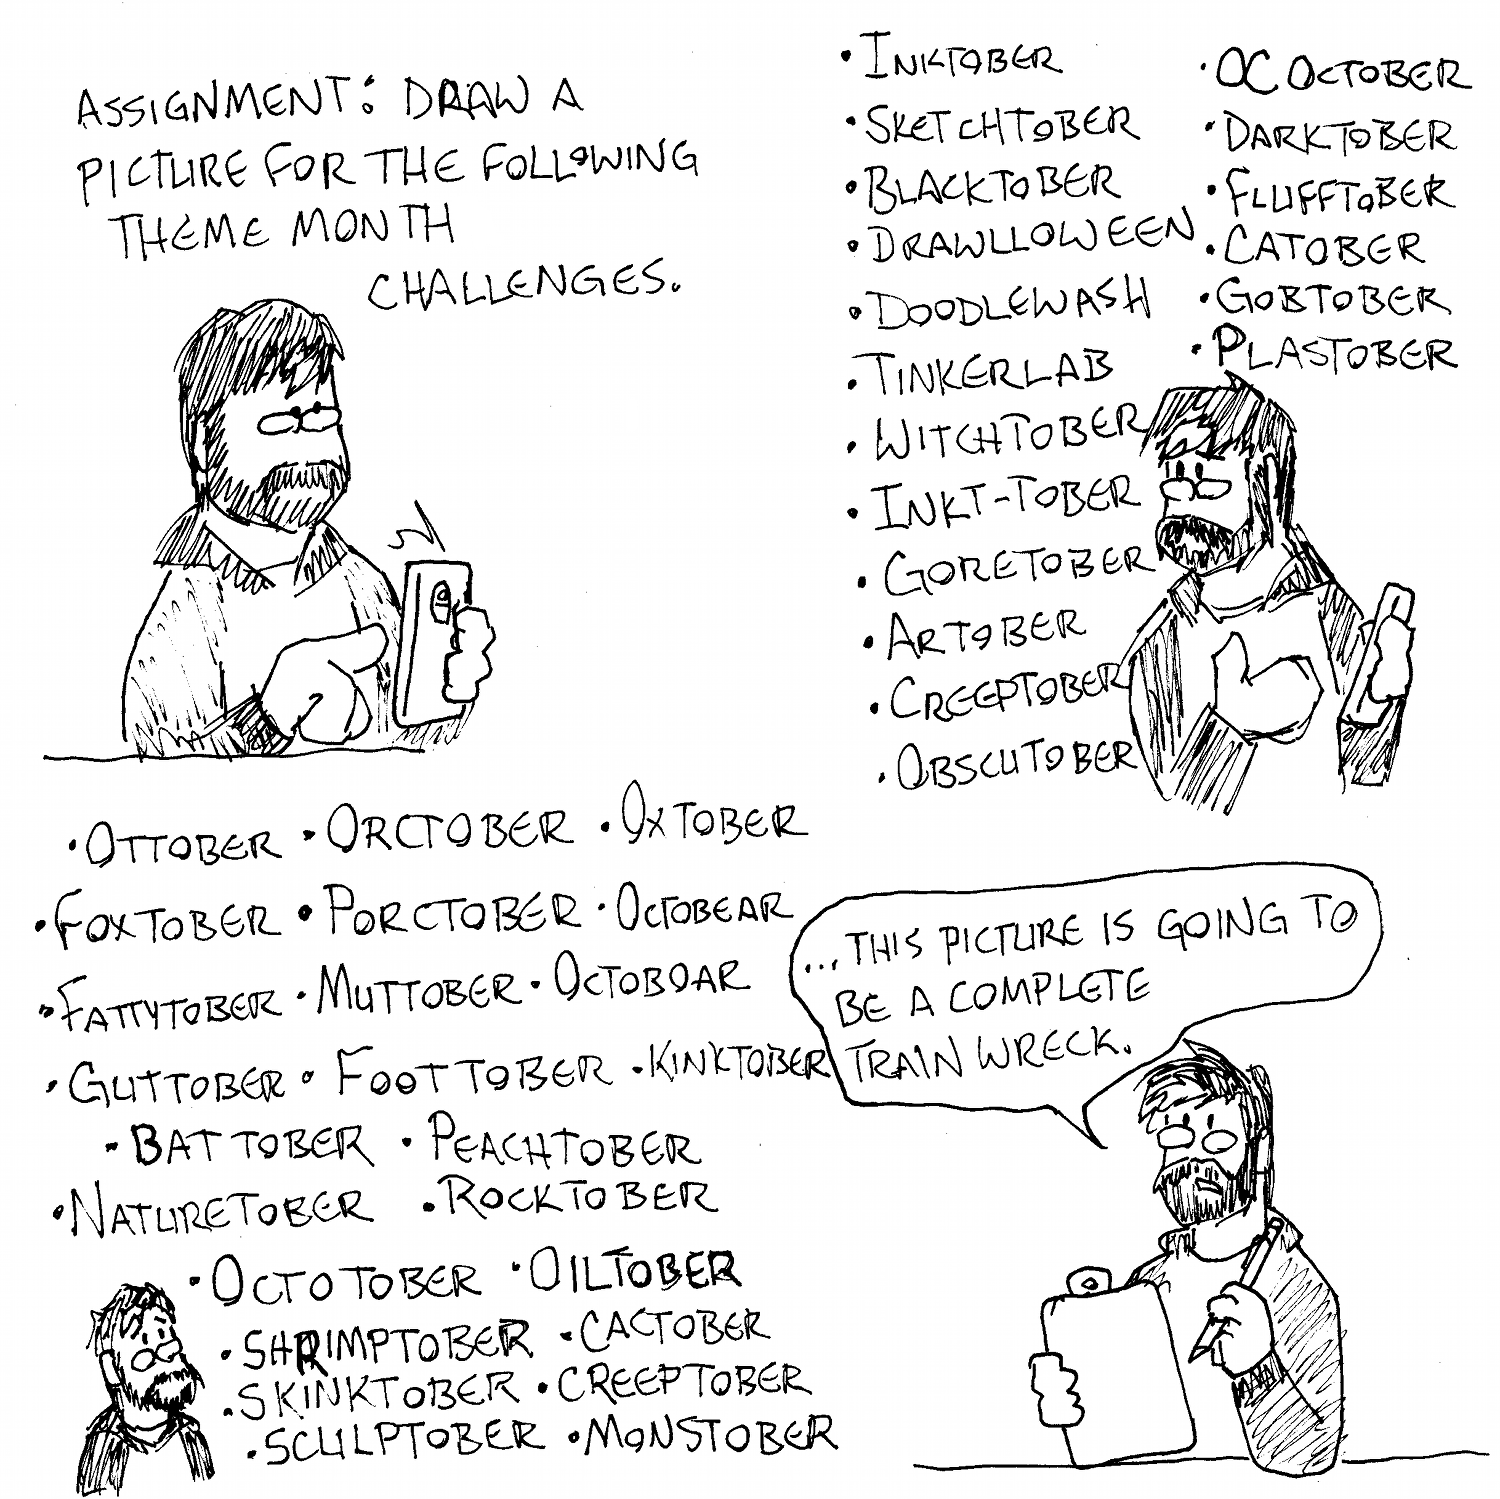 ASSIGNMENT: DRAW A
PICTURE FOR THE FOLLOWING
THEME MONTH
CHALLENGES.
• INKTOBER
• SKETCHTOBER
• BLACKTOBER
• DRAWLLOWEEN
• DOODLEWASH
• TINKERLAB
• WITCHTOBER
• INKT-TOBER
• GORETOBER
• ARTOBER
• CREEPTOBER
• OBSCUTOBER
• OC OCTOBER
• DARKTOBER
• FLUFFTOBER
• CATOBER
• GOBTOBER
• PLASTOBER
• OTTOBER • ORCTOBER • OXTOBER
• FOXTOBER • PORCTOBER • OCTOBEAR
• FATTYTOBER • MUTTOBER • OCTOBOAR
• GUTTOBER • FOOTTOBER • KINKTOBER
• BATTOBER • PEACHTOBER
• NATURETOBER • ROCKTOBER
• OCTOTOBER • OILTOBER
• SHRIMPTOBER • CACTOBER
• SKINKTOBER • CREEPTOBER
• SCULPTOBER • MONSTOBER
...THIS PICTURE IS GOING TO
BE A COMPLETE
TRAIN WRECK.